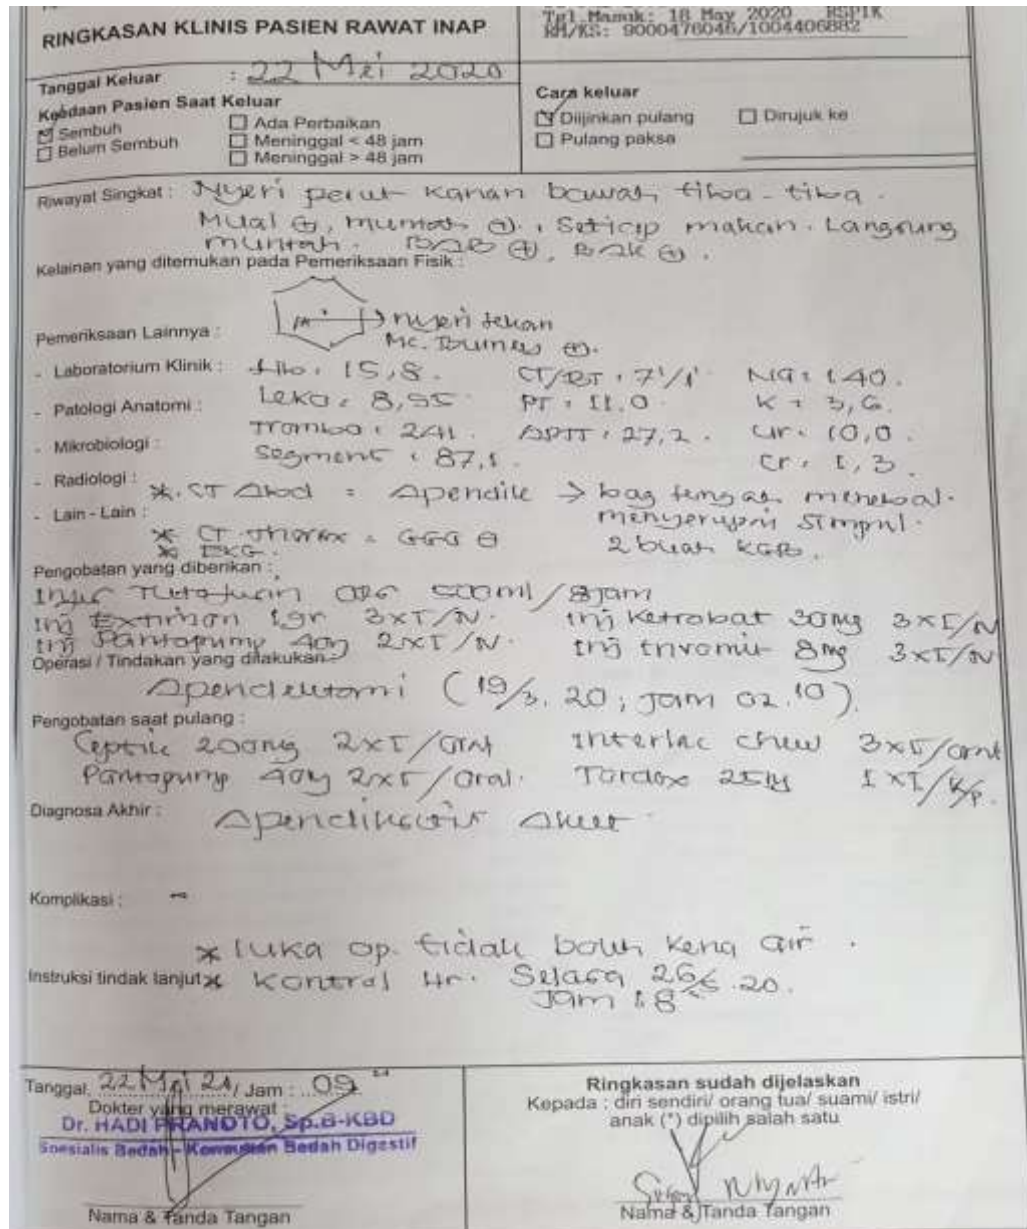 RINGKASAN KLINIS PASIEN RAWAT INAP
Tgl Masuk: 18 May 2020 RSPIK
RM/KS: 9000476046/1004406882
Tanggal Keluar : 22 Mei 2020
Keadaan Pasien Saat Keluar
Sembuh
Belum Sembuh
Ada Perbaikan
Meninggal < 48 jam
Meninggal > 48 jam
Cara keluar
Diijinkan pulang
Dirujuk ke
Pulang paksa
Riwayat Singkat : Nyeri perut kanan bawah tiba-tiba.
Mual ⊕, muntah ⊕. Setiap makan. Langsung
muntah. BAB ⊕, BAK ⊕.
Kelainan yang ditemukan pada Pemeriksaan Fisik :
nyeri tekan
Pemeriksaan Lainnya : Mc. Burney ⊕.
- Laboratorium Klinik : : 15,8. CT/BT : 7'/1' Na : 140.
- Patologi Anatomi : Leko : 8,55 PT : 11.0 K : 3,6
Trombo : 241. APTT : 27,2. Ur : 10,0.
- Mikrobiologi : Segment : 87,1. Cr : 1,3
- Radiologi : * CT Abd = Apendik → bag tengah menebal.
menyerupai simpul.
- Lain - Lain : * CT thorax = GGO ⊖ 2 buah KGB.
* EKG.
Pengobatan yang diberikan :
500ml/8jam
Inj 1gr 3xI/IV. Inj Ketrobat 30mg 3xI/IV
Inj Pantopump 40mg 2xI/IV. Inj 8mg 3xI/IV
Operasi / Tindakan yang dilakukan :
Apendektomi (19/ . 20, jam 02.10).
Pengobatan saat pulang :
Ceptik 200mg 2xI/oral Interlac chew 3xI/oral
Pantopump 40mg 2xI/oral. 25mg 1xI/k/p.
Diagnosa Akhir : Apendiksitis Akut
Komplikasi : -
* luka op. tidak boleh kena air.
Instruksi tindak lanjut * Kontrol Hr. Selasa 26/5.20.
Jam : 8
Tanggal. 22 Mei 20 / Jam : 09
Dokter yang merawat :
Dr. HADI PRANOTO, Sp.B-KBD
Spesialis Bedah - Konsultan Bedah Digestif
Nama & Tanda Tangan
Ringkasan sudah dijelaskan
Kepada : diri sendiri/ orang tua/ suami/ istri/
anak (*) dipilih salah satu
Nama & Tanda Tangan